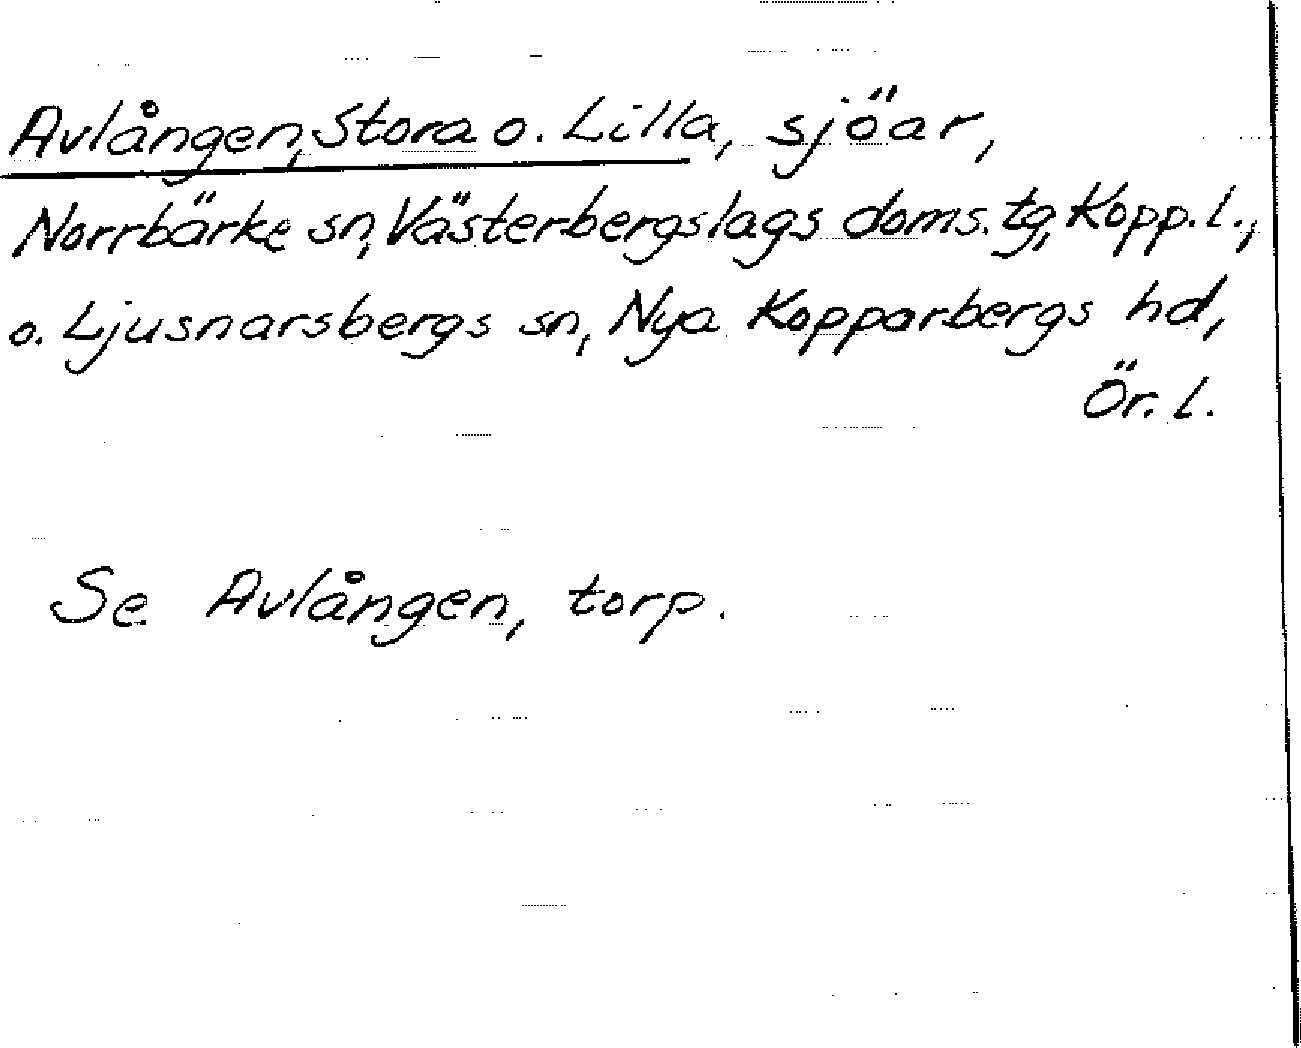 Avlången, Stora o. Lilla, sjöar,
Norrbärke sn, Västerbergslags doms. tg, Kopp. l.,
o. Ljusnarsbergs sn, Nya Kopparbergs hd,
Ör. l.
Se Avlången, torp.